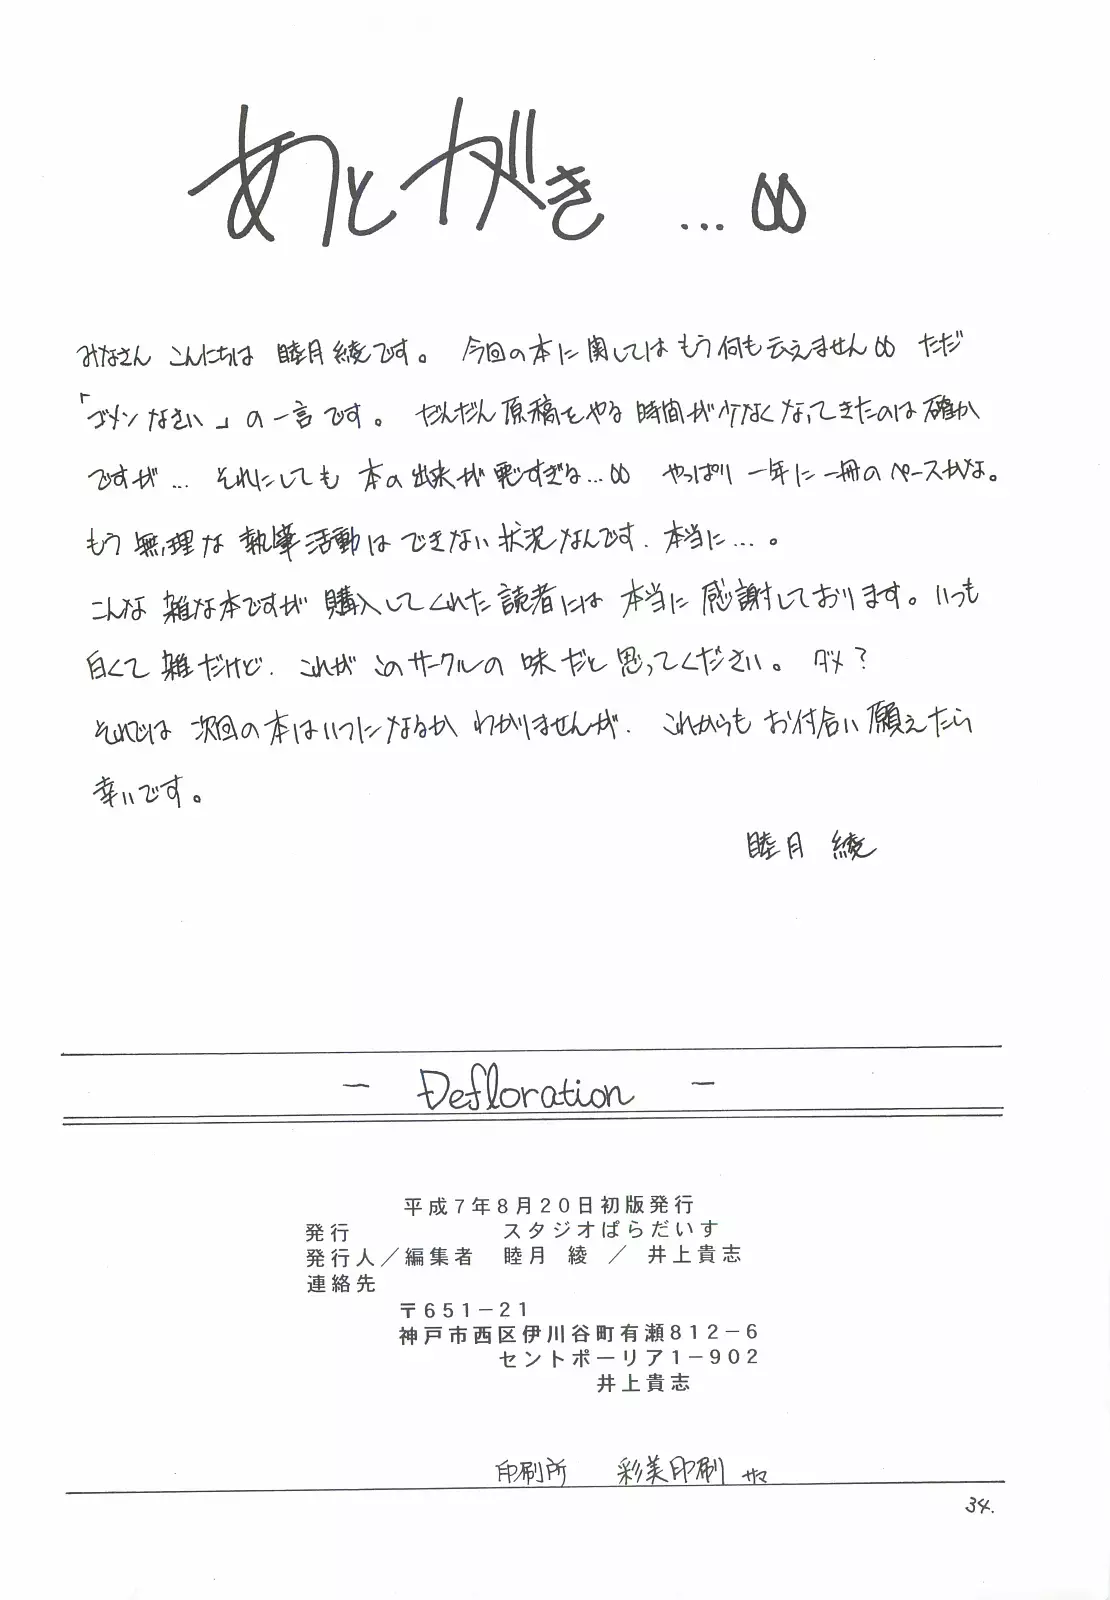 あとがき …
みなさん こんにちは 睦月綾です。 今回の本に関してはもう何も云えません ただ
「ゴメンなさい」の一言です。 だんだん原稿をやる時間が少なくなってきたのは確か
ですが… それにしても 本の出来が悪すぎる… やっぱり 一年に一冊のペースかな。
もう無理な執筆活動はできない状況なんです. 本当に…。
こんな雑な本ですが 購入してくれた読者には 本当に感謝しております。いつも
白くて雑だけど. これが このサークルの味だと思ってください。 ダメ?
それでは 次回の本はいつになるか わかりませんが. これからも お付合い願えたら
幸いです。
睦月 綾
− Defloration −
平成7年8月20日初版発行
発行 スタジオぱらだいす
発行人/編集者 睦月 綾 / 井上貴志
連絡先
〒651−21
神戸市西区伊川谷町有瀬812−6
セントポーリア1−902
井上貴志
印刷所 彩美印刷 サマ
34.